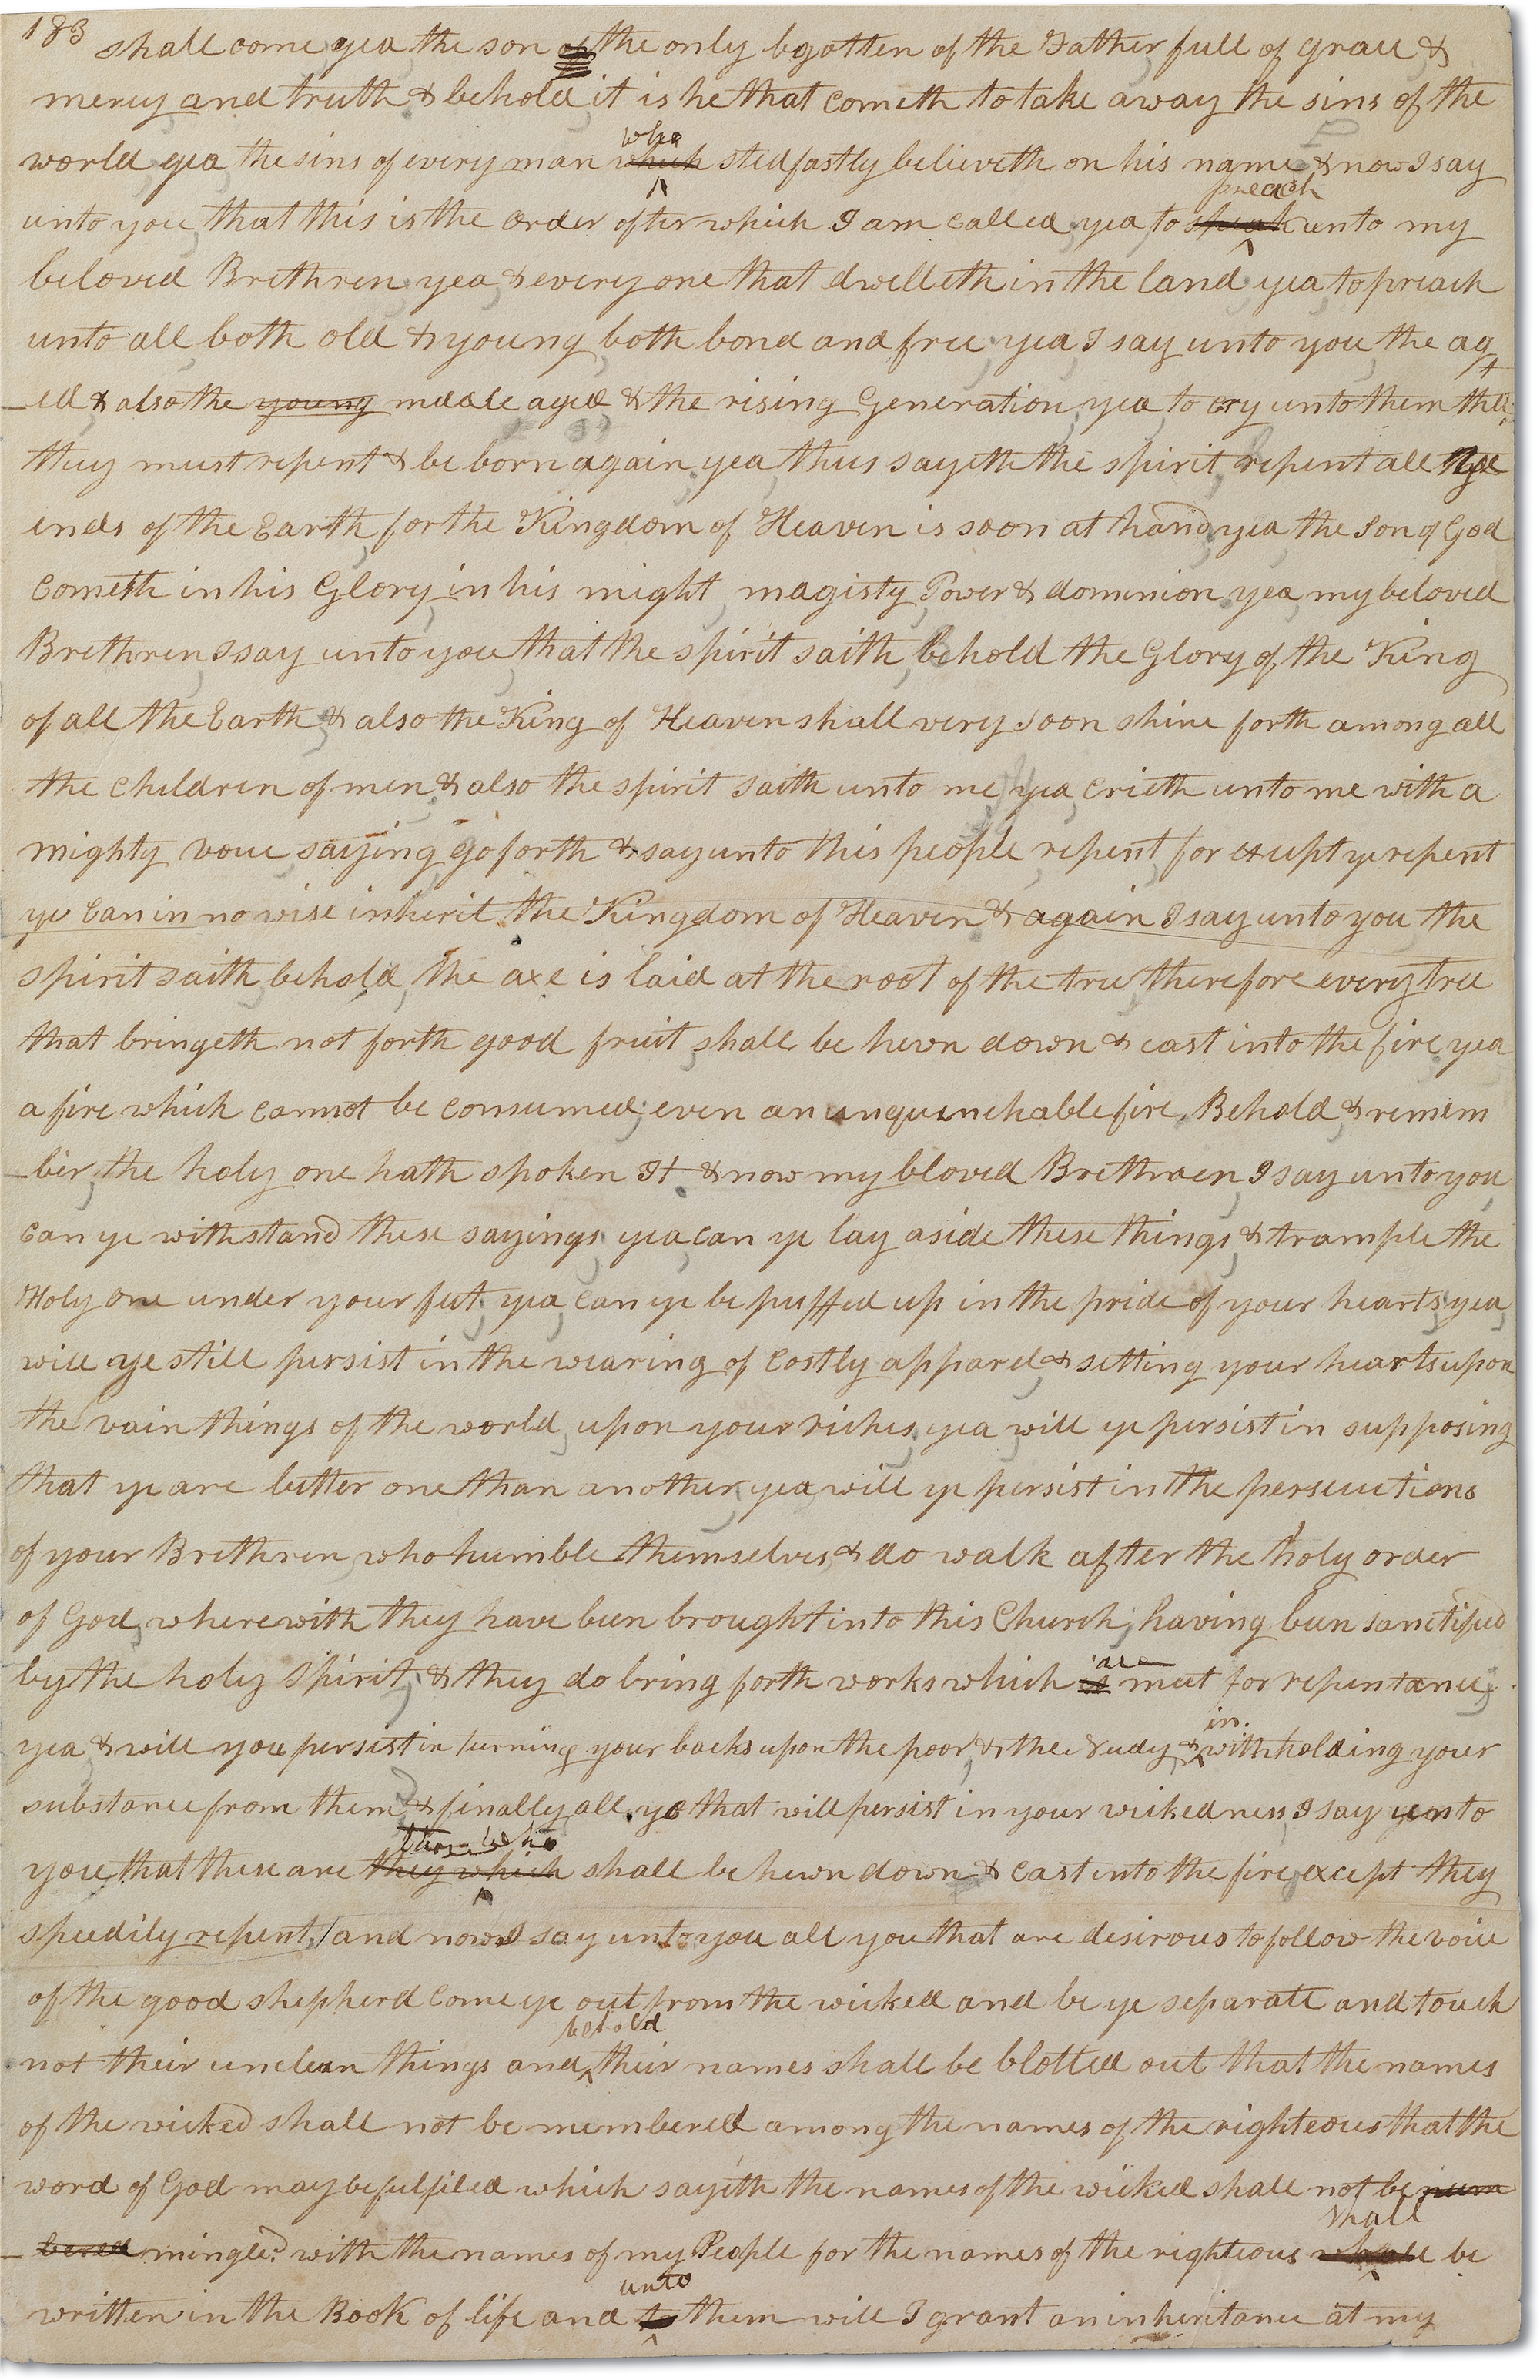 183 shall come yea the son of the only bgotten of the Father full of grace &
mercy and truth & behold it is he that cometh to take away the sins of the
who
world yea the sins of every man which stedfastly believeth on his name & now I say
preach
unto you that this is the order after which I am called yea to speak unto my
beloved Brethren yea & every one that dwelleth in the land yea to preach
unto all both old & young both bond and free yea I say unto you the ag
-ed & also the young middle aged & the rising Generation yea to cry unto them that
they must repent & be born again yea thus sayeth the spirit repent all ye
ends of the Earth for the Kingdom of Heaven is soon at hand yea the Son of God
cometh in his Glory in his might magisty Power & dominion yea my beloved
Brethren I say unto you that the spirit saith behold the Glory of the King
of all the Earth & also the King of Heaven shall very soon shine forth among all
the children of men & also the spirit saith unto me yea crieth unto me with a
mighty voice saying go forth & say unto this people repent for except ye repent
ye can in no wise inherit the Kingdom of Heaven & again I say unto you the
spirit saith behold the axe is laid at the root of the tree therefore every tree
that bringeth not forth good fruit shall be hewn down & cast into the fire yea
a fire which cannot be consumed even an unquenchable fire. Behold & remem
-ber the holy one hath spoken It & now my bloved Brethren I say unto you
can ye withstand these sayings yea can ye lay aside these things & trample the
Holy one under your feet yea can ye be puffed up in the pride of your hearts yea
will ye still persist in the wearing of costly apparel & setting your hearts upon
the vain things of the world upon your riches yea will ye persist in supposing
that ye are better one than another yea will ye persist in the persecutions
of your Brethren who humble themselves & do walk after the holy order
of God wherewith they have been brought into this Church having been sanctified
are
by the holy Spirit & they do bring forth works which is meet for repentance
in
yea & will you persist in turning your backs upon the poor & the needy & withholding your
substance from them & finally all ye that will persist in your wickedness I say unto
those who
you that these are they which shall be hewn down & cast into the fire except they
speedily repent and now I say unto you all you that are desirous to follow the voice
of the good shepherd come ye out from the wicked and be ye separate and touch
behold
not their unclean things and their names shall be blotted out that the names
of the wicked shall not be numbered among the names of the righteous that the
word of God may be fulfiled which sayeth the names of the wicked shall not be num
shall
-bered mingled with the names of my People for the names of the righteous shall be
unto
written in the Book of life and to them will I grant an inheritance at my